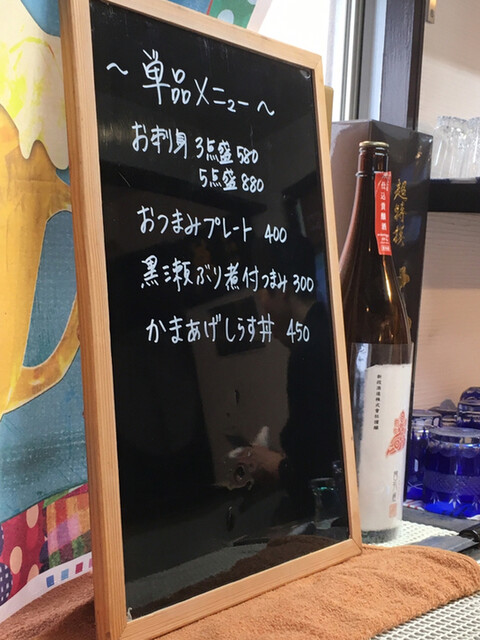 ～単品メニュー～
お刺身 3点盛 580
5点盛 880
おつまみプレート 400
黒瀬ぶり煮付つまみ 300
かまあげしらす丼 450
超特撰